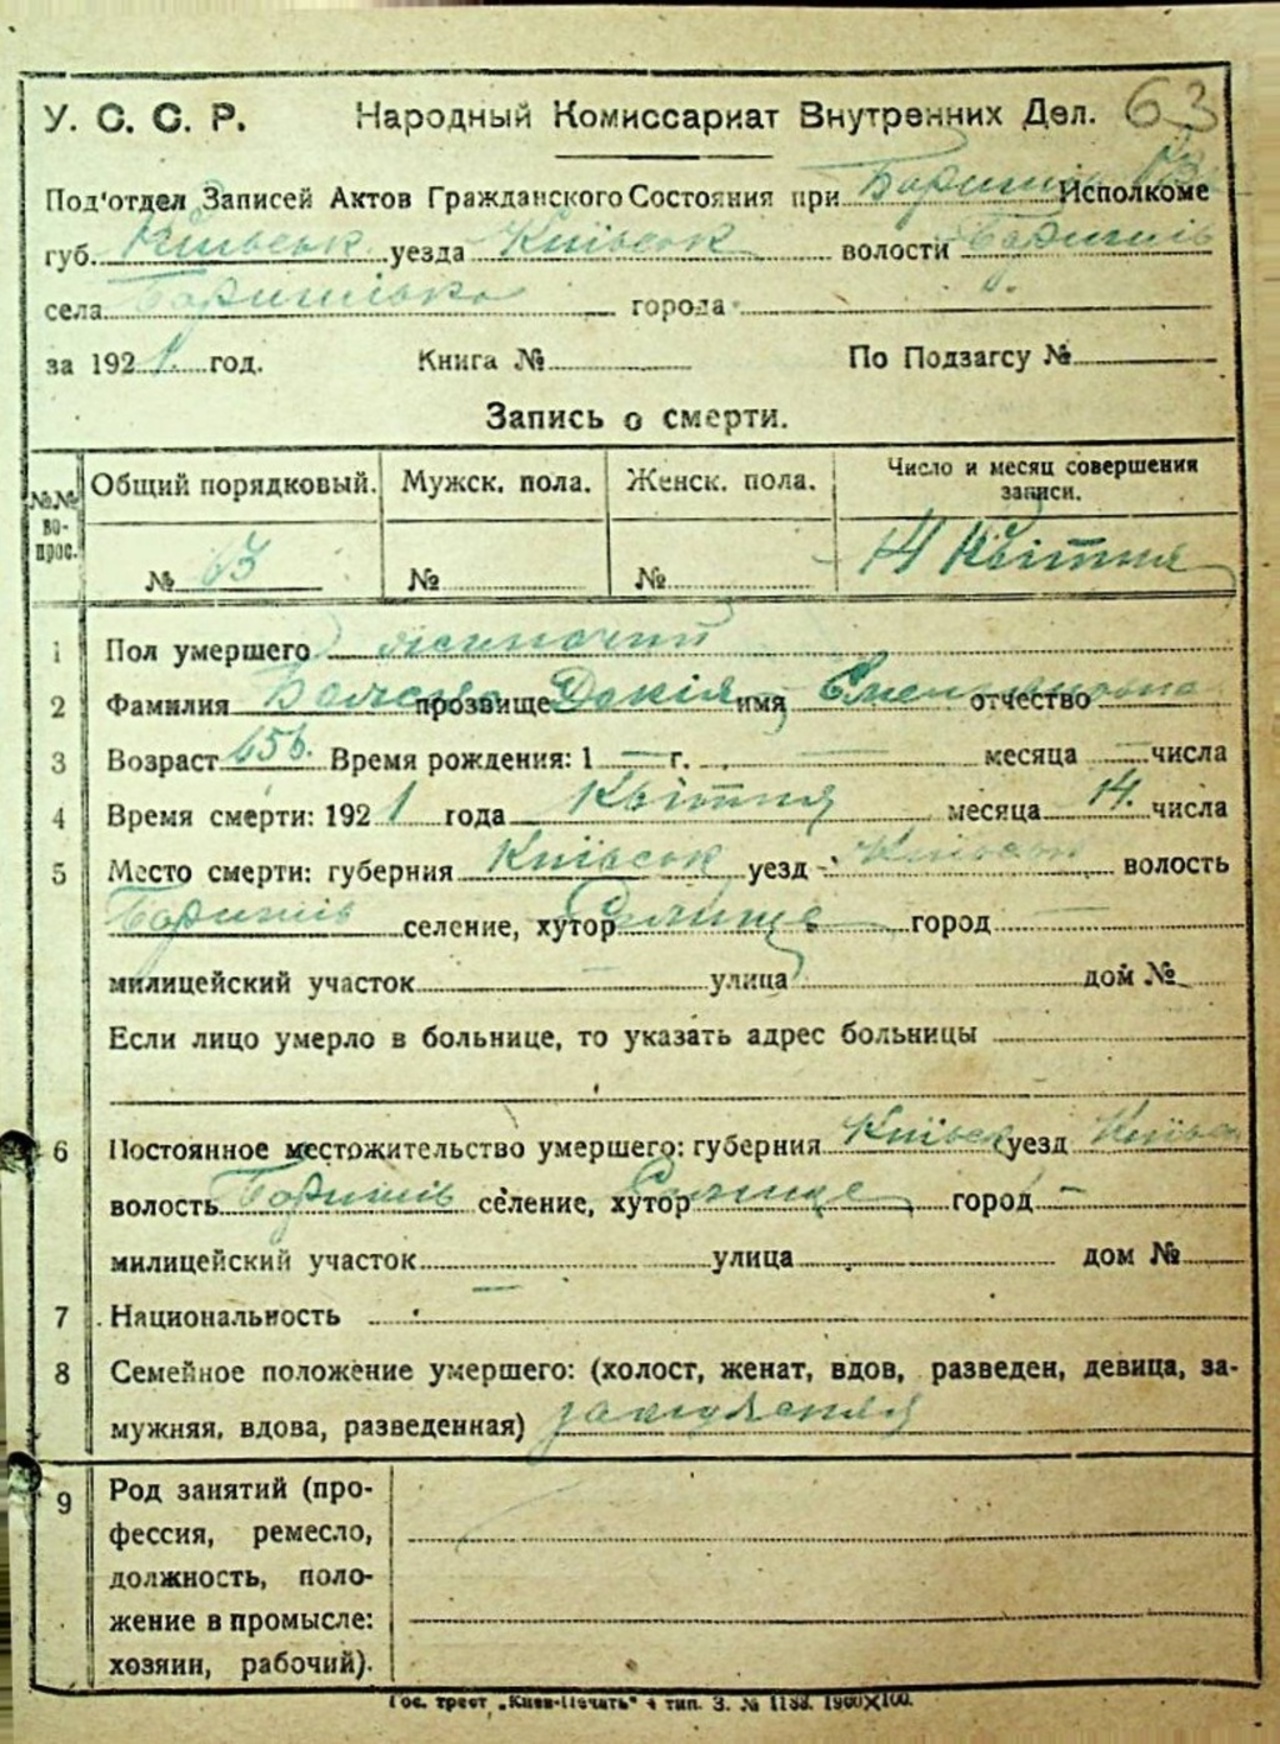 63
У. С. С. Р. Народный Комиссариат Внутренних Дел.
Под'отдел Записей Актов Гражданского Состояния при Исполкоме
губ. Київськ уезда Київськ волости Бориспіль
села города
за 1921 год. Книга № По Подзагсу №
Запись о смерти.
№№ вопрос. Общий порядковый. Мужск. пола. Женск. пола. Число и месяц совершения записи.
№ 63 № № 14 Квітня
1 Пол умершего жиночий
2 Фамилия прозвище Докія имя отчество
3 Возраст 65 Время рождения: 1 — г. — месяца — числа
4 Время смерти: 1921 года Квітня месяца 14. числа
5 Место смерти: губерния Київськ уезд Київськ волость
Бориспіль селение, хутор Селище город —
милицейский участок — улица дом №
Если лицо умерло в больнице, то указать адрес больницы
6 Постоянное местожительство умершего: губерния Київськ уезд Київськ
волость Бориспіль селение, хутор Селище город —
милицейский участок улица дом №
7 Национальность —
8 Семейное положение умершего: (холост, женат, вдов, разведен, девица, за-
мужняя, вдова, разведенная) замужняя
9 Род занятий (про-
фессия, ремесло,
должность, поло-
жение в промысле:
хозяин, рабочий).
Гос. трест „Киев-Печать“ 4 тип. З. № 1188. 1960×100.